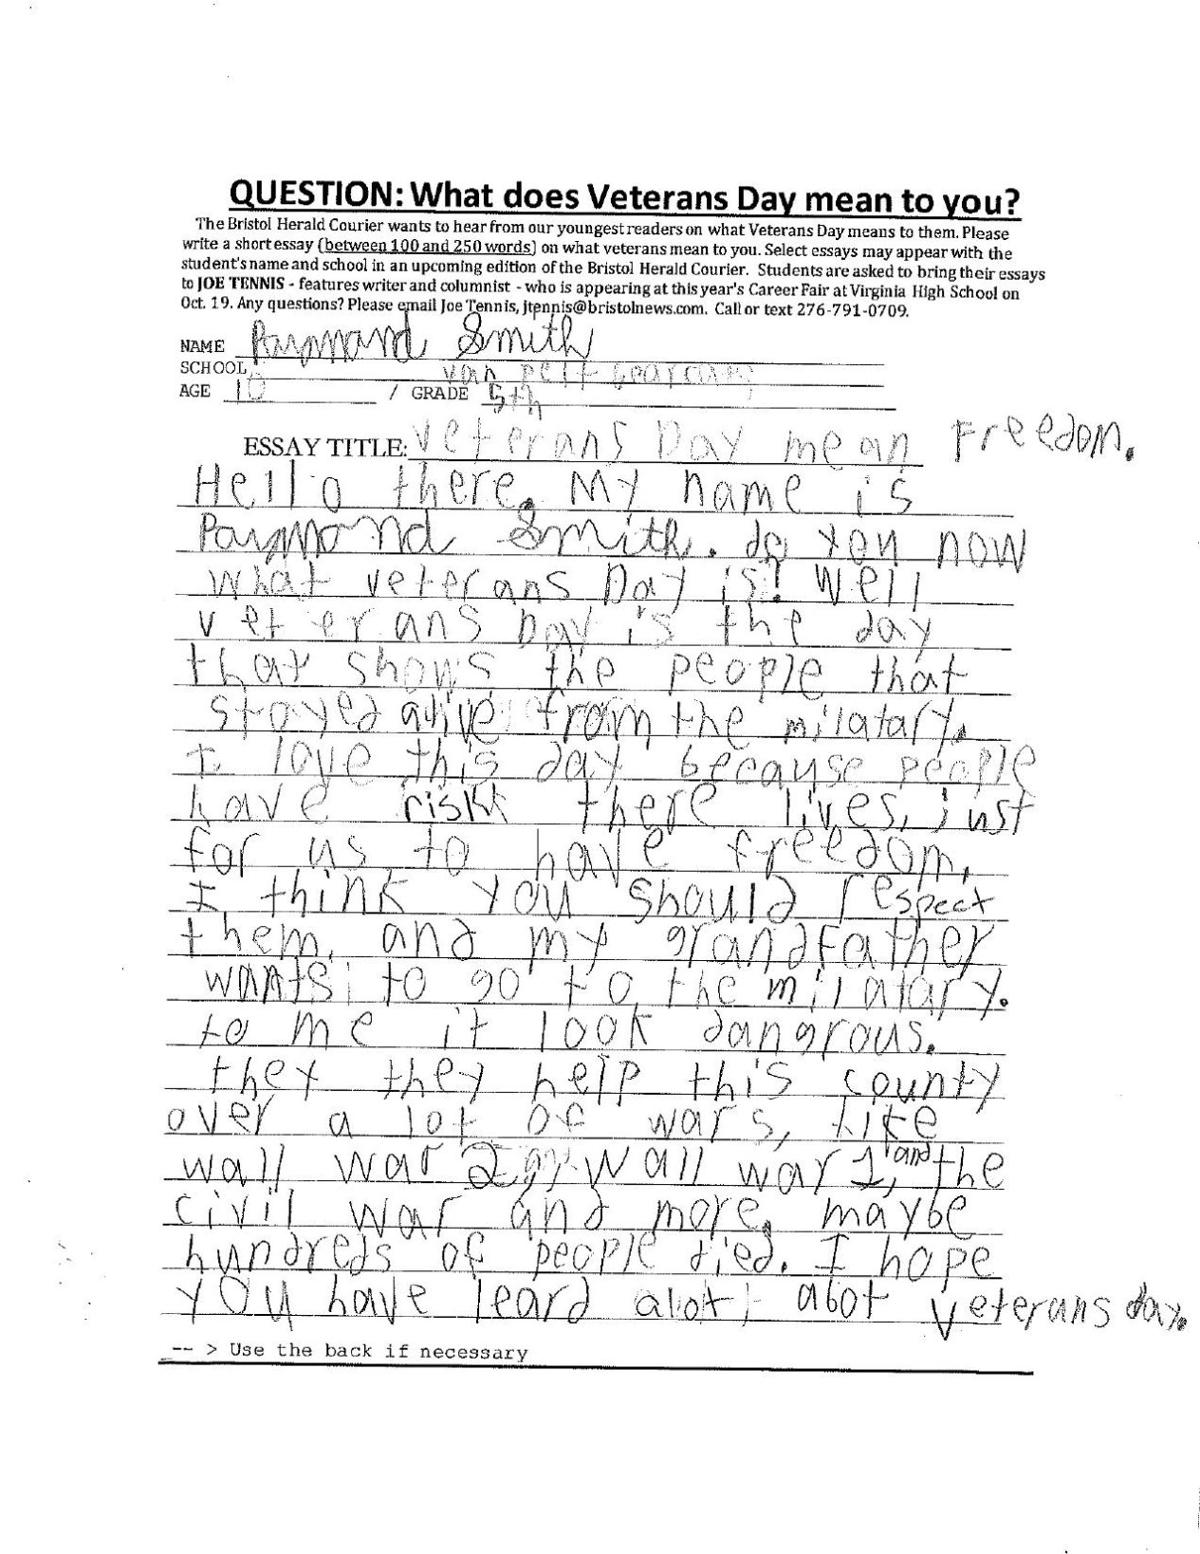 QUESTION: What does Veterans Day mean to you?
The Bristol Herald Courier wants to hear from our youngest readers on what Veterans Day means to them. Please
write a short essay (between 100 and 250 words) on what veterans mean to you. Select essays may appear with the
student's name and school in an upcoming edition of the Bristol Herald Courier. Students are asked to bring their essays
to JOE TENNIS - features writer and columnist - who is appearing at this year's Career Fair at Virginia High School on
Oct. 19. Any questions? Please email Joe Tennis, jtennis@bristolnews.com. Call or text 276-791-0709.
NAME Raymond Smith
SCHOOL van pelt
AGE 10 / GRADE 5th
ESSAY TITLE: veterans Day mean Freedom.
Hello there. My name is
Raymond Smith. do you now
what veterans Day is! well
veterans Day is the day
that shows the people that
stayed alive from the milatary.
I love this day because people
have risk there lives, just
for us to have freedom,
I think you should respect
them. and my grandfather
wants to go to the milatary.
to me it look dangrous.
they they help this county
over a lot of wars, like
wall war 2 wall war 1, and the
civil war and more. maybe
hundreds of people died. I hope
you have leard alot abot veterans day.
-- > Use the back if necessary